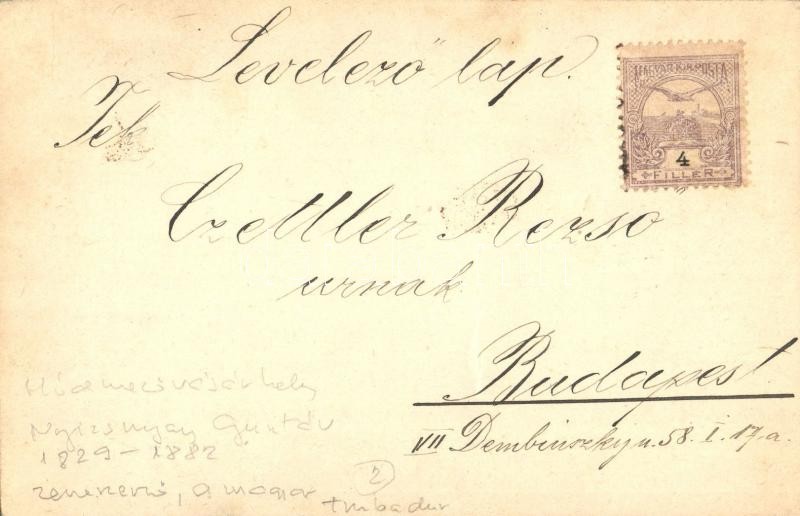 Levelező lap.
MAGYAR KIR. POSTA
4
FILLÉR
Tek
Czettler Rezső
urnak
Budapest
VII Dembinszky u. 58. I. 17. a.
Hódmezővásárhely
Gusztáv
1829 – 1882
zeneszerző, a magyar
trubadur
2